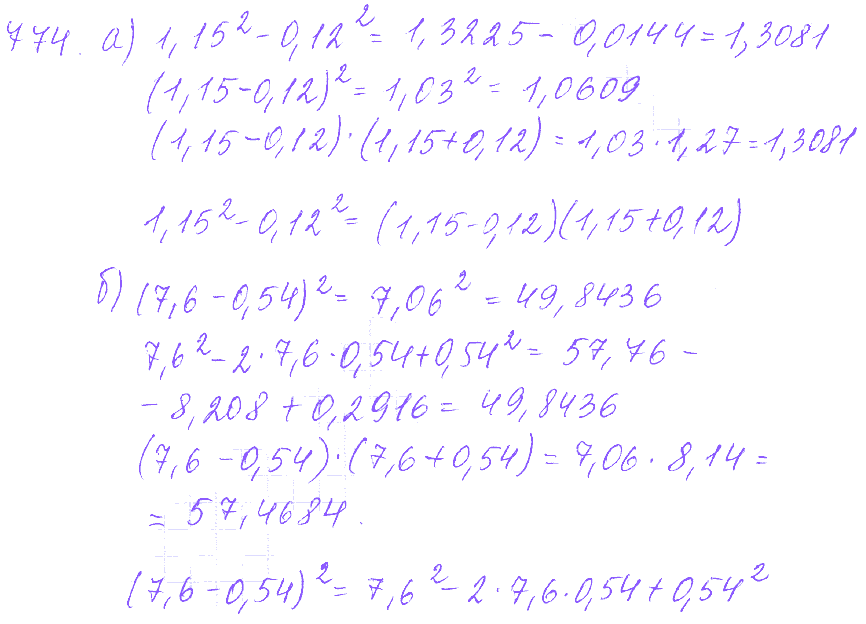 774. а) 1,15² - 0,12² = 1,3225 - 0,0144 = 1,3081
(1,15-0,12)² = 1,03² = 1,0609
(1,15-0,12)·(1,15+0,12) = 1,03·1,27 = 1,3081
1,15² - 0,12² = (1,15-0,12)(1,15+0,12)
б) (7,6-0,54)² = 7,06² = 49,8436
7,6² - 2·7,6·0,54 + 0,54² = 57,76 -
- 8,208 + 0,2916 = 49,8436
(7,6-0,54)·(7,6+0,54) = 7,06·8,14 =
= 57,4684.
(7,6-0,54)² = 7,6² - 2·7,6·0,54 + 0,54²